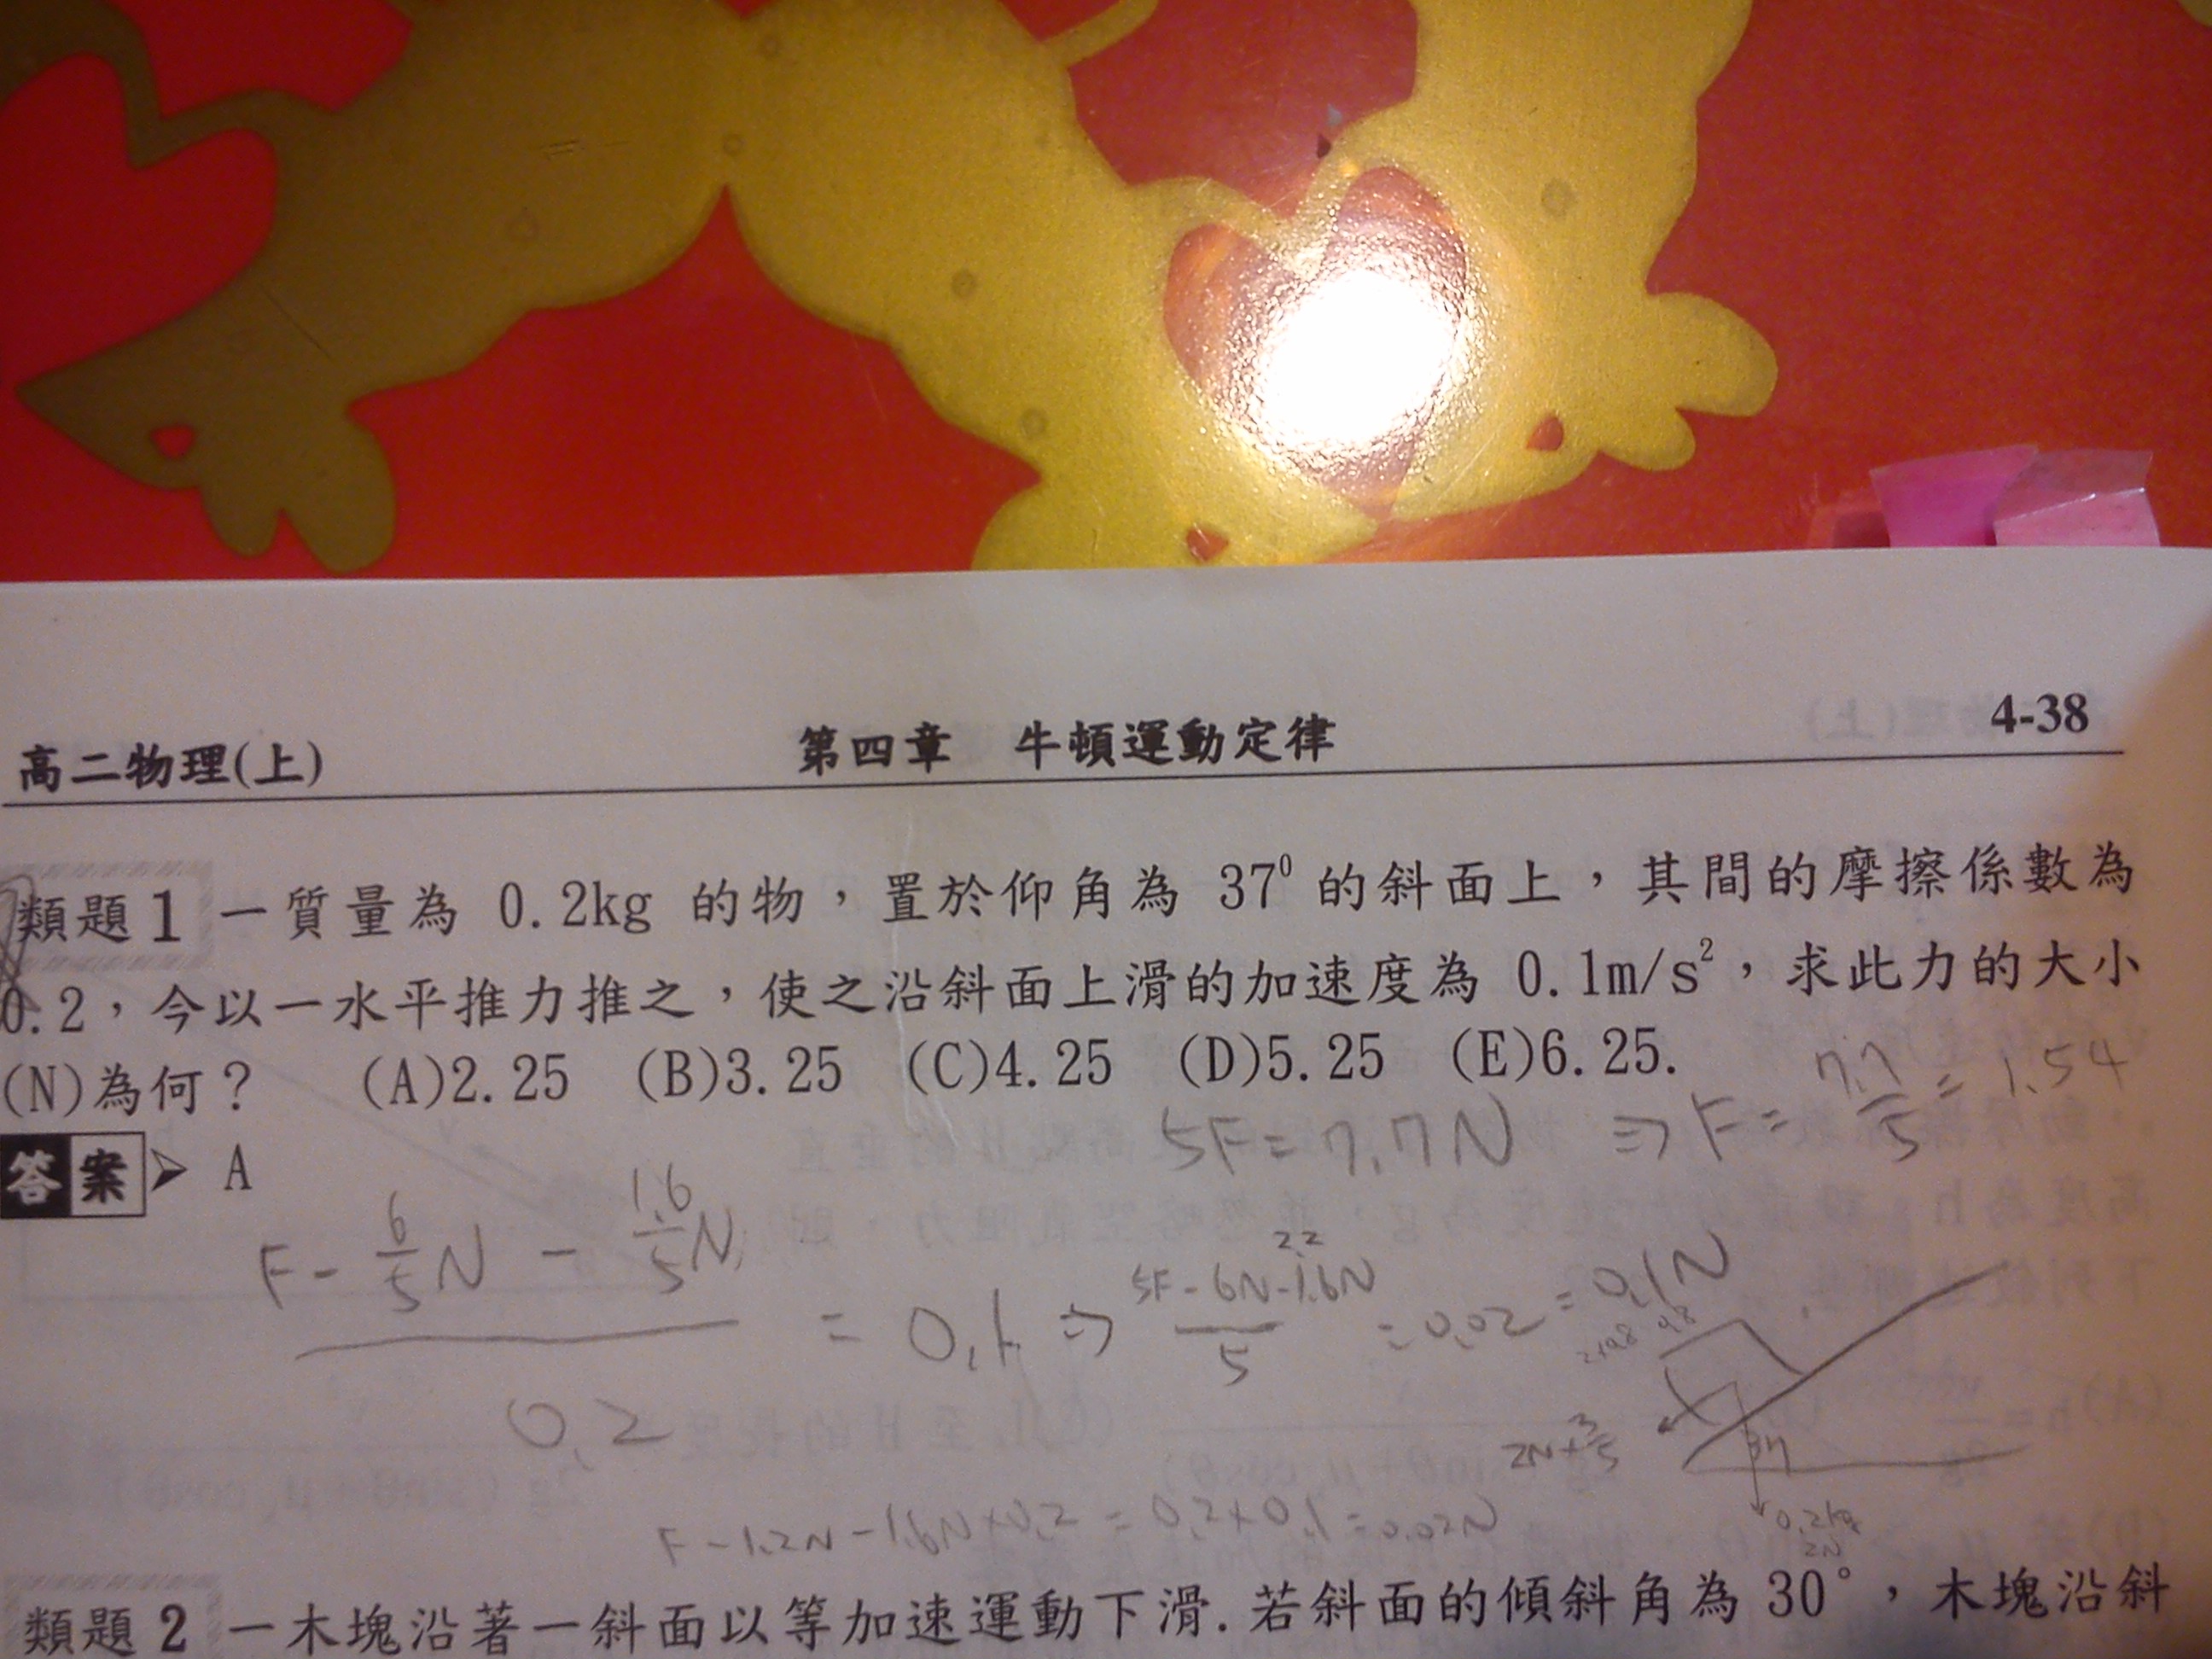 高二物理(上) 第四章 牛頓運動定律 4-38
類題1 一質量為 0.2kg 的物，置於仰角為 37⁰ 的斜面上，其間的摩擦係數為
0.2，今以一水平推力推之，使之沿斜面上滑的加速度為 0.1m/s²，求此力的大小
(N)為何？ (A)2.25 (B)3.25 (C)4.25 (D)5.25 (E)6.25.
5F=7.7N ⇒ F= 7.7/5 = 1.54
答案 ➢ A
F - 6/5 N - 1.6/5 N
= 0.1 ⇒ 5F-6N-1.6N / 5 = 0.02 = 0.1N
2.2
0.2
2N × 3/5
37
0.2kg
2N
F-1.2N-1.6N×0.2 = 0.2×0.1=0.02N
類題2 一木塊沿著一斜面以等加速運動下滑.若斜面的傾斜角為 30°，木塊沿斜